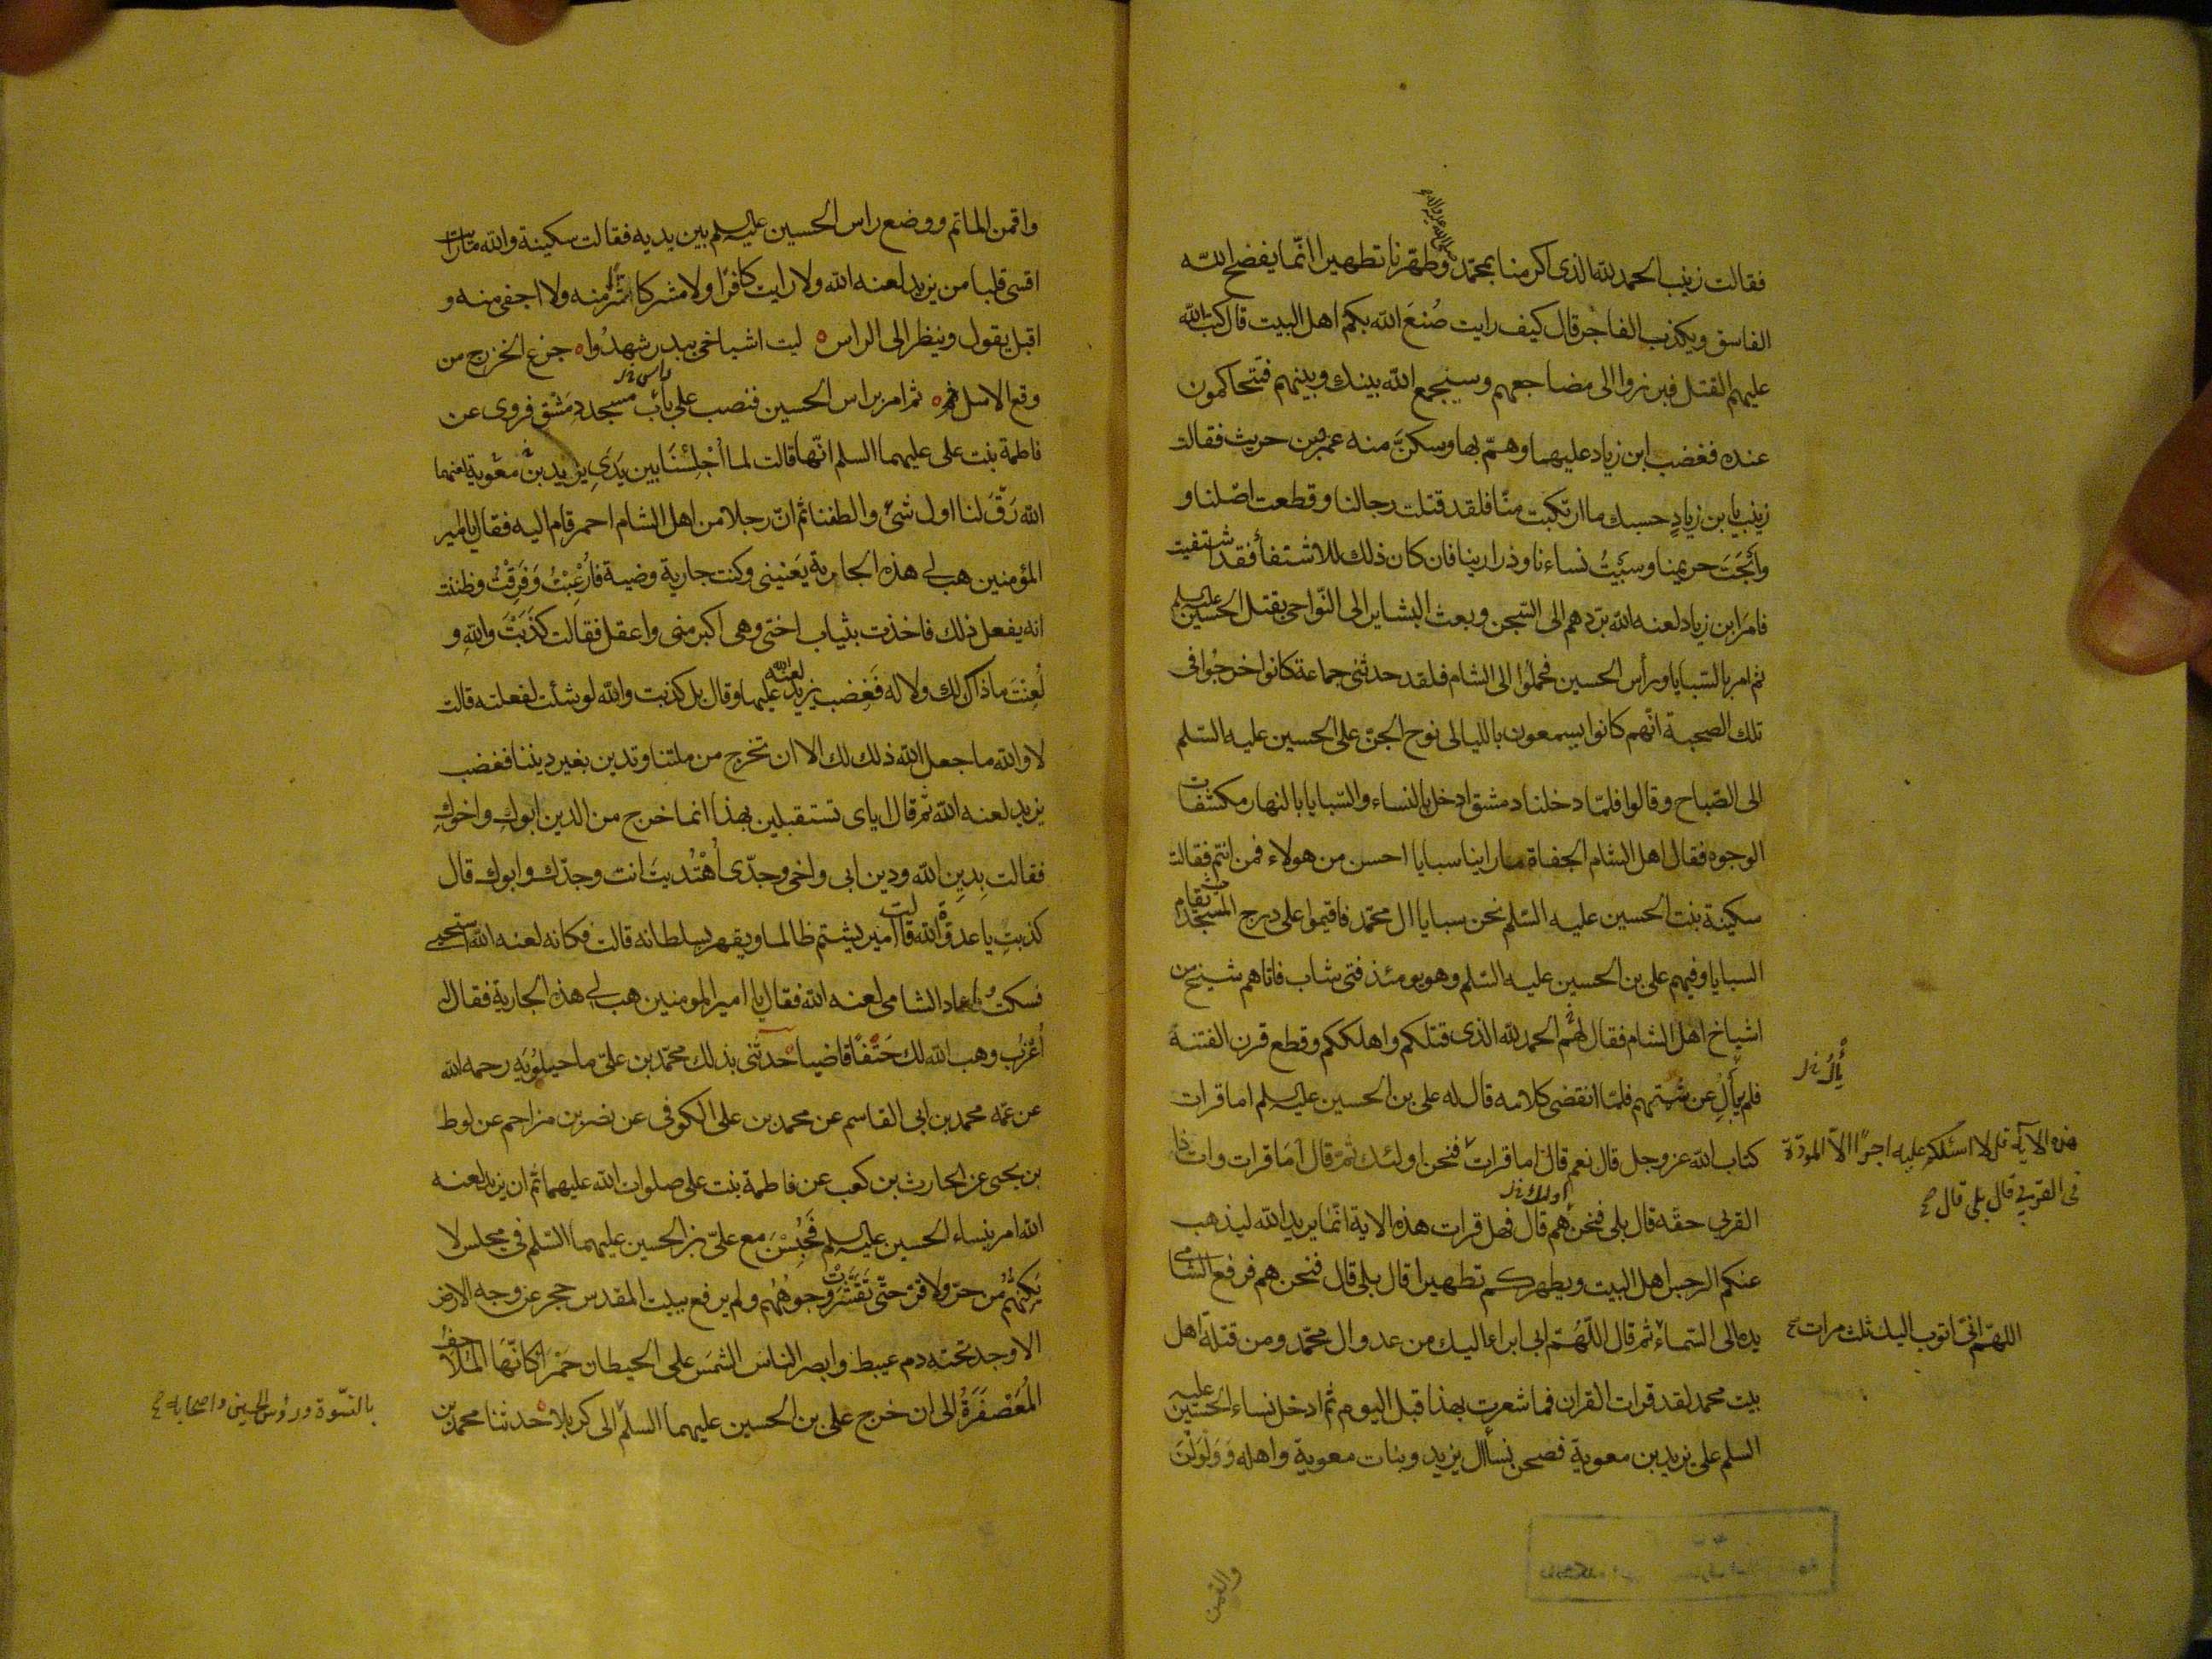 فقالت زينب الحمد لله الذى اكرمنا بمحمد وطهّرنا تطهيرا انّما يفضح الله
صلى الله عليه واله
الفاسق ويكذب الفاجر قال كيف رايت صُنعَ الله بكم اهل البيت قال كتب الله
عليهم القتل فبرزوا الى مضاجعهم وسيجمع الله بينك وبينهم فتتحاكمون
عنده فغضب ابن زياد عليها وهمّ بها وسكنّ منه عمرو بن حريث فقالت
زينب يا بن زيادٍ حسبك ما ارتكبت منّا فلقد قتلت رجالنا وقطعت اصلنا و
وابَحَتَ حريمنا وسبَيتُ نساءنا وذرارينا فان كان ذلك للاشتفاء فقد اشتفيت
فامَرَ ابن زياد لعنه الله بردّهم الى السّجن وبعث البشاير الى النّواحى بقتل الحسين عليه السلم
ثم امر بالسّبايا ورأس الحسين فحملُوا الى الشام فلقد حدثنى جماعة كانوا خرجُوا فى
تلك الصحبة انّهم كانوا يسمعون بالليالى نوح الجنّ على الحسين عليه السّلم
الى الصّباح وقالوا فلمّا دخلنا دمشق ادخل بالنساء والسّبايا بالنهار مكشفات
الوجوه فقال اهل الشام الجفاة ما راينا سبايا احسن من هولاء فمن انتم فقالت
سكينة بنت الحسين عليه السّلم نحن سبايا ال محمّد فاقيموا على درج المسجد حيث يقام
السبايا وفيهم على بن الحسين عليه السّلم وهو يومئذ فتى شاب فاتاهم شيخ من
اشياخ اهل الشام فقال لهم الحمد لله الذى قتلكم واهلككم وقطع قرن الفتنة
فلم يأل عن شتمهم فلمّا انقضى كلامه قال له على بن الحسين عليه السلم اما قرات
يألُ نخ
كتاب الله عز وجل قال نعم قال اما قرات فنحن اولئك ثمّ قال اَمَا قرات وات ذا
هذه الاية قل لا اسئلكم عليه اجرًا الّا المودّة
فى القربى قال بلى قال صح
القربى حقّه قال بلى فنحن هم قال فهل قرات هذه الاية انّما يريد الله ليذهب
اولئك نخ
عنكم الرجس اهل البيت ويطهركم تطهيرا قال بلى قال فنحن هم فرفع الشّامى
يده الى السّماء ثم قال اللّهُمّ انى ابراء اليك من عدو ال محمّد ومن قتلة اهل
اللهمّ انى اتوب اليك ثلث مرات صح
بيت محمد لقد قرات القران فما شعرت بهذا قبل اليوم ثم ادخل نساء الحسين عليه
السلم على يزيد بن معوية فصحن نساء ال يزيد وبنات معوية واهله وَوَلْوَلْنَ
واقمن
واقمن الماتم ووضع راس الحسين عليه السلم بين يديه فقالت سكينة والله ما رايت
اقسى قلبا من يزيد لعنه الله ولا رايت كافرًا ولا مشركا شرًّا منه ولا اجفى منه و
اقبل يقول وينظر الى الراس ليت اشياخى ببدر شهدُوا جزع الخزرج من
وقع الاسل ثم امر براس الحسين فنصب على باب مسجد دِمَشق فروى عن
راس نخ
فاطمة بنت على عليهما السلم انّها قالت لما اُجْلِسْنَا بين يَدَىِ يزيد بن معوية لعنهما
الله رَقّ لنا اول شىء والطفنا ثم انّ رجلا من اهل الشام احمر قام اليه فقال يا امير
المؤمنين هب لى هذه الجارية يَعنينى وكنت جارية وضيئة فارْعِبْتُ وَفَرِقْتُ وظننت
انه يفعل ذلك فاخذت بثياب اختى وهى اكبر منى واعقل فقالت كذَبَتْ واللهِ و
لُعِنْتَ ما ذاك لك ولا له فَغَضِب يزيد لعنه الله عليها وقال بل كذبت والله لو شئت لفعلته قالت
لا والله ما جعل الله ذلك لك الا ان تخرج من ملتنا وتدين بغير ديننا فغضب
يزيد لعنه الله ثم قال اياى تستقبلين بهذا انما خرج من الدين ابوكِ واخوكِ
فقالت بِدِينِ الله ودين ابى واخى وجدّى اُهْتُديتَ انت وجدّك وابوك قال
كذبتِ يا عدوّة الله قالت امير يشتم ظالما ويقهر بسلطانه قالت فكانه لعنه الله استحيى
فسكت فاعاد الشامى لعنه الله فقال يا امير المومنين هب لى هذه الجارية فقال له
اُعْزُب وهب الله لك حَتْفًا قاضيا حدثنى بذلك محمّد بن على ماجيلُوَيْه رحمه الله
عن عمّه محمد بن ابى القاسم عن محمد بن على الكوفى عن نصر بن مزاحم عن لوط
بن يحيى عن الحارث بن كعب عن فاطمة بنت على صلوات الله عليهما ثم ان يزيد لعنه
الله امر بنساء الحسين عليه السلم فَحُبِسْنَ مع علىّ بن الحسين عليهما السّلم فى مجلس لا
يَكنّهُم من حرّ ولا قرّ حتّى تَقَشّرَت وجوههُم ولم يرفع ببيت المقدس حجر عن وجه الارض
الا وجد تحته دم عبيط وابصر الناس الشمَس على الحيطان حَمْرَاَ كانّهَا الملاحف
المُعَصْفَرَةُ الى ان خرج على بن الحسين عليهما السلم الى كربلا حدثنا محمد بن
بالنسّوة ورؤس الحسين واصحابه صح